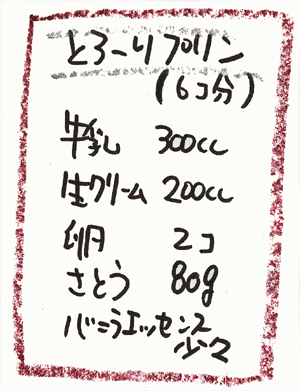 とろーりプリン
(6コ分)
牛乳 300cc
生クリーム 200cc
卵 2コ
さとう 80g
バニラエッセンス
少々